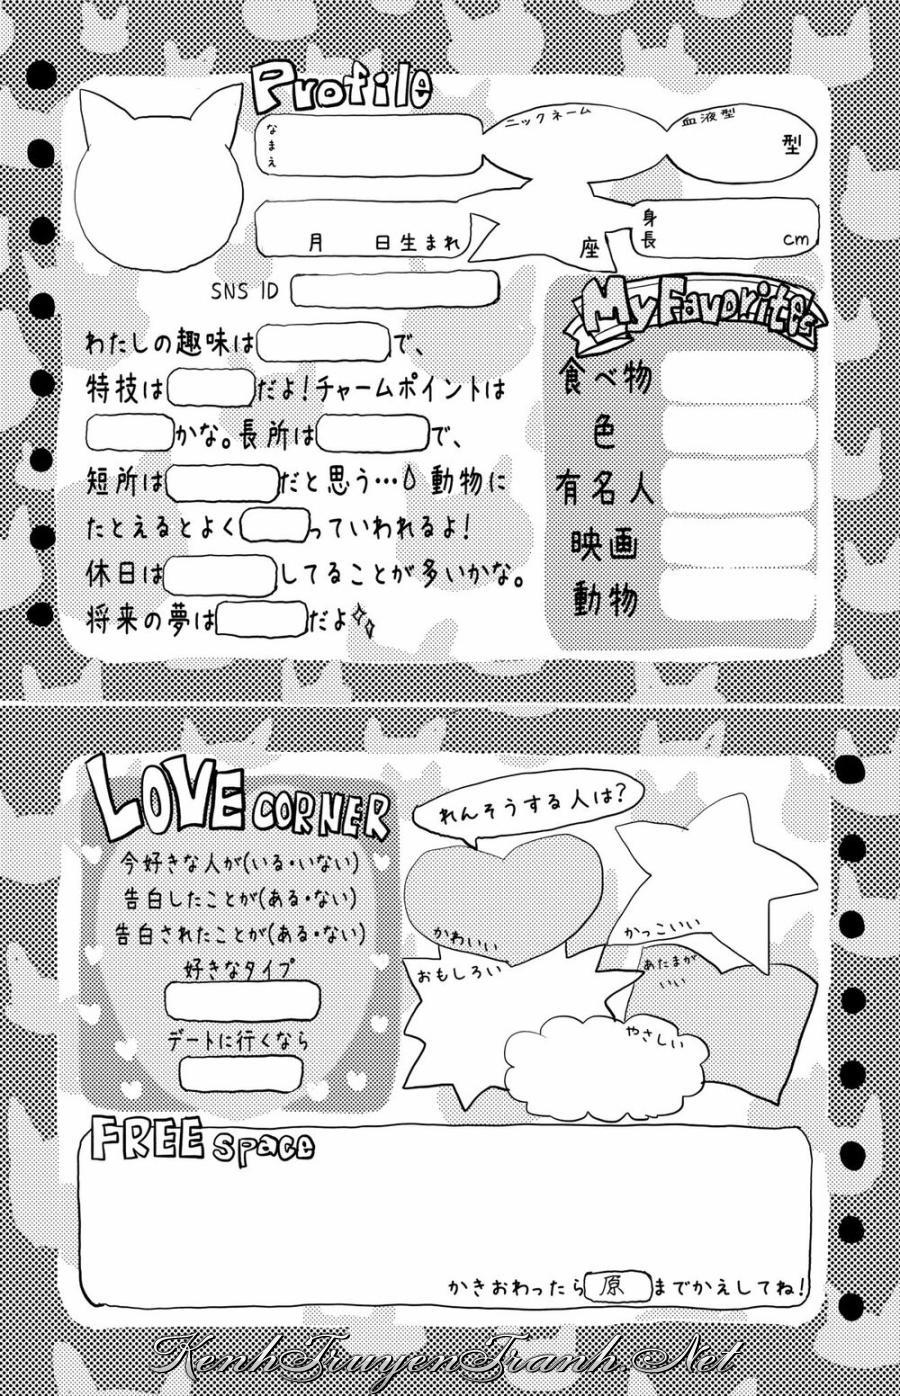 Profile
なまえ
ニックネーム
血液型
型
月 日生まれ
座
身長
cm
SNS ID
わたしの趣味は で、
特技は だよ!チャームポイントは
かな。長所は で、
短所は だと思う…動物に
たとえるとよく っていわれるよ!
休日は してることが多いかな。
将来の夢は だよ
My Favorites
食べ物
色
有名人
映画
動物
LOVE CORNER
今好きな人が(いる・いない)
告白したことが(ある・ない)
告白されたことが(ある・ない)
好きなタイプ
デートに行くなら
れんそうする人は?
かわいい
かっこいい
おもしろい
あたまが
いい
やさしい
FREE Space
かきおわったら 原 までかえしてね!
KenhTruyenTranh.Net